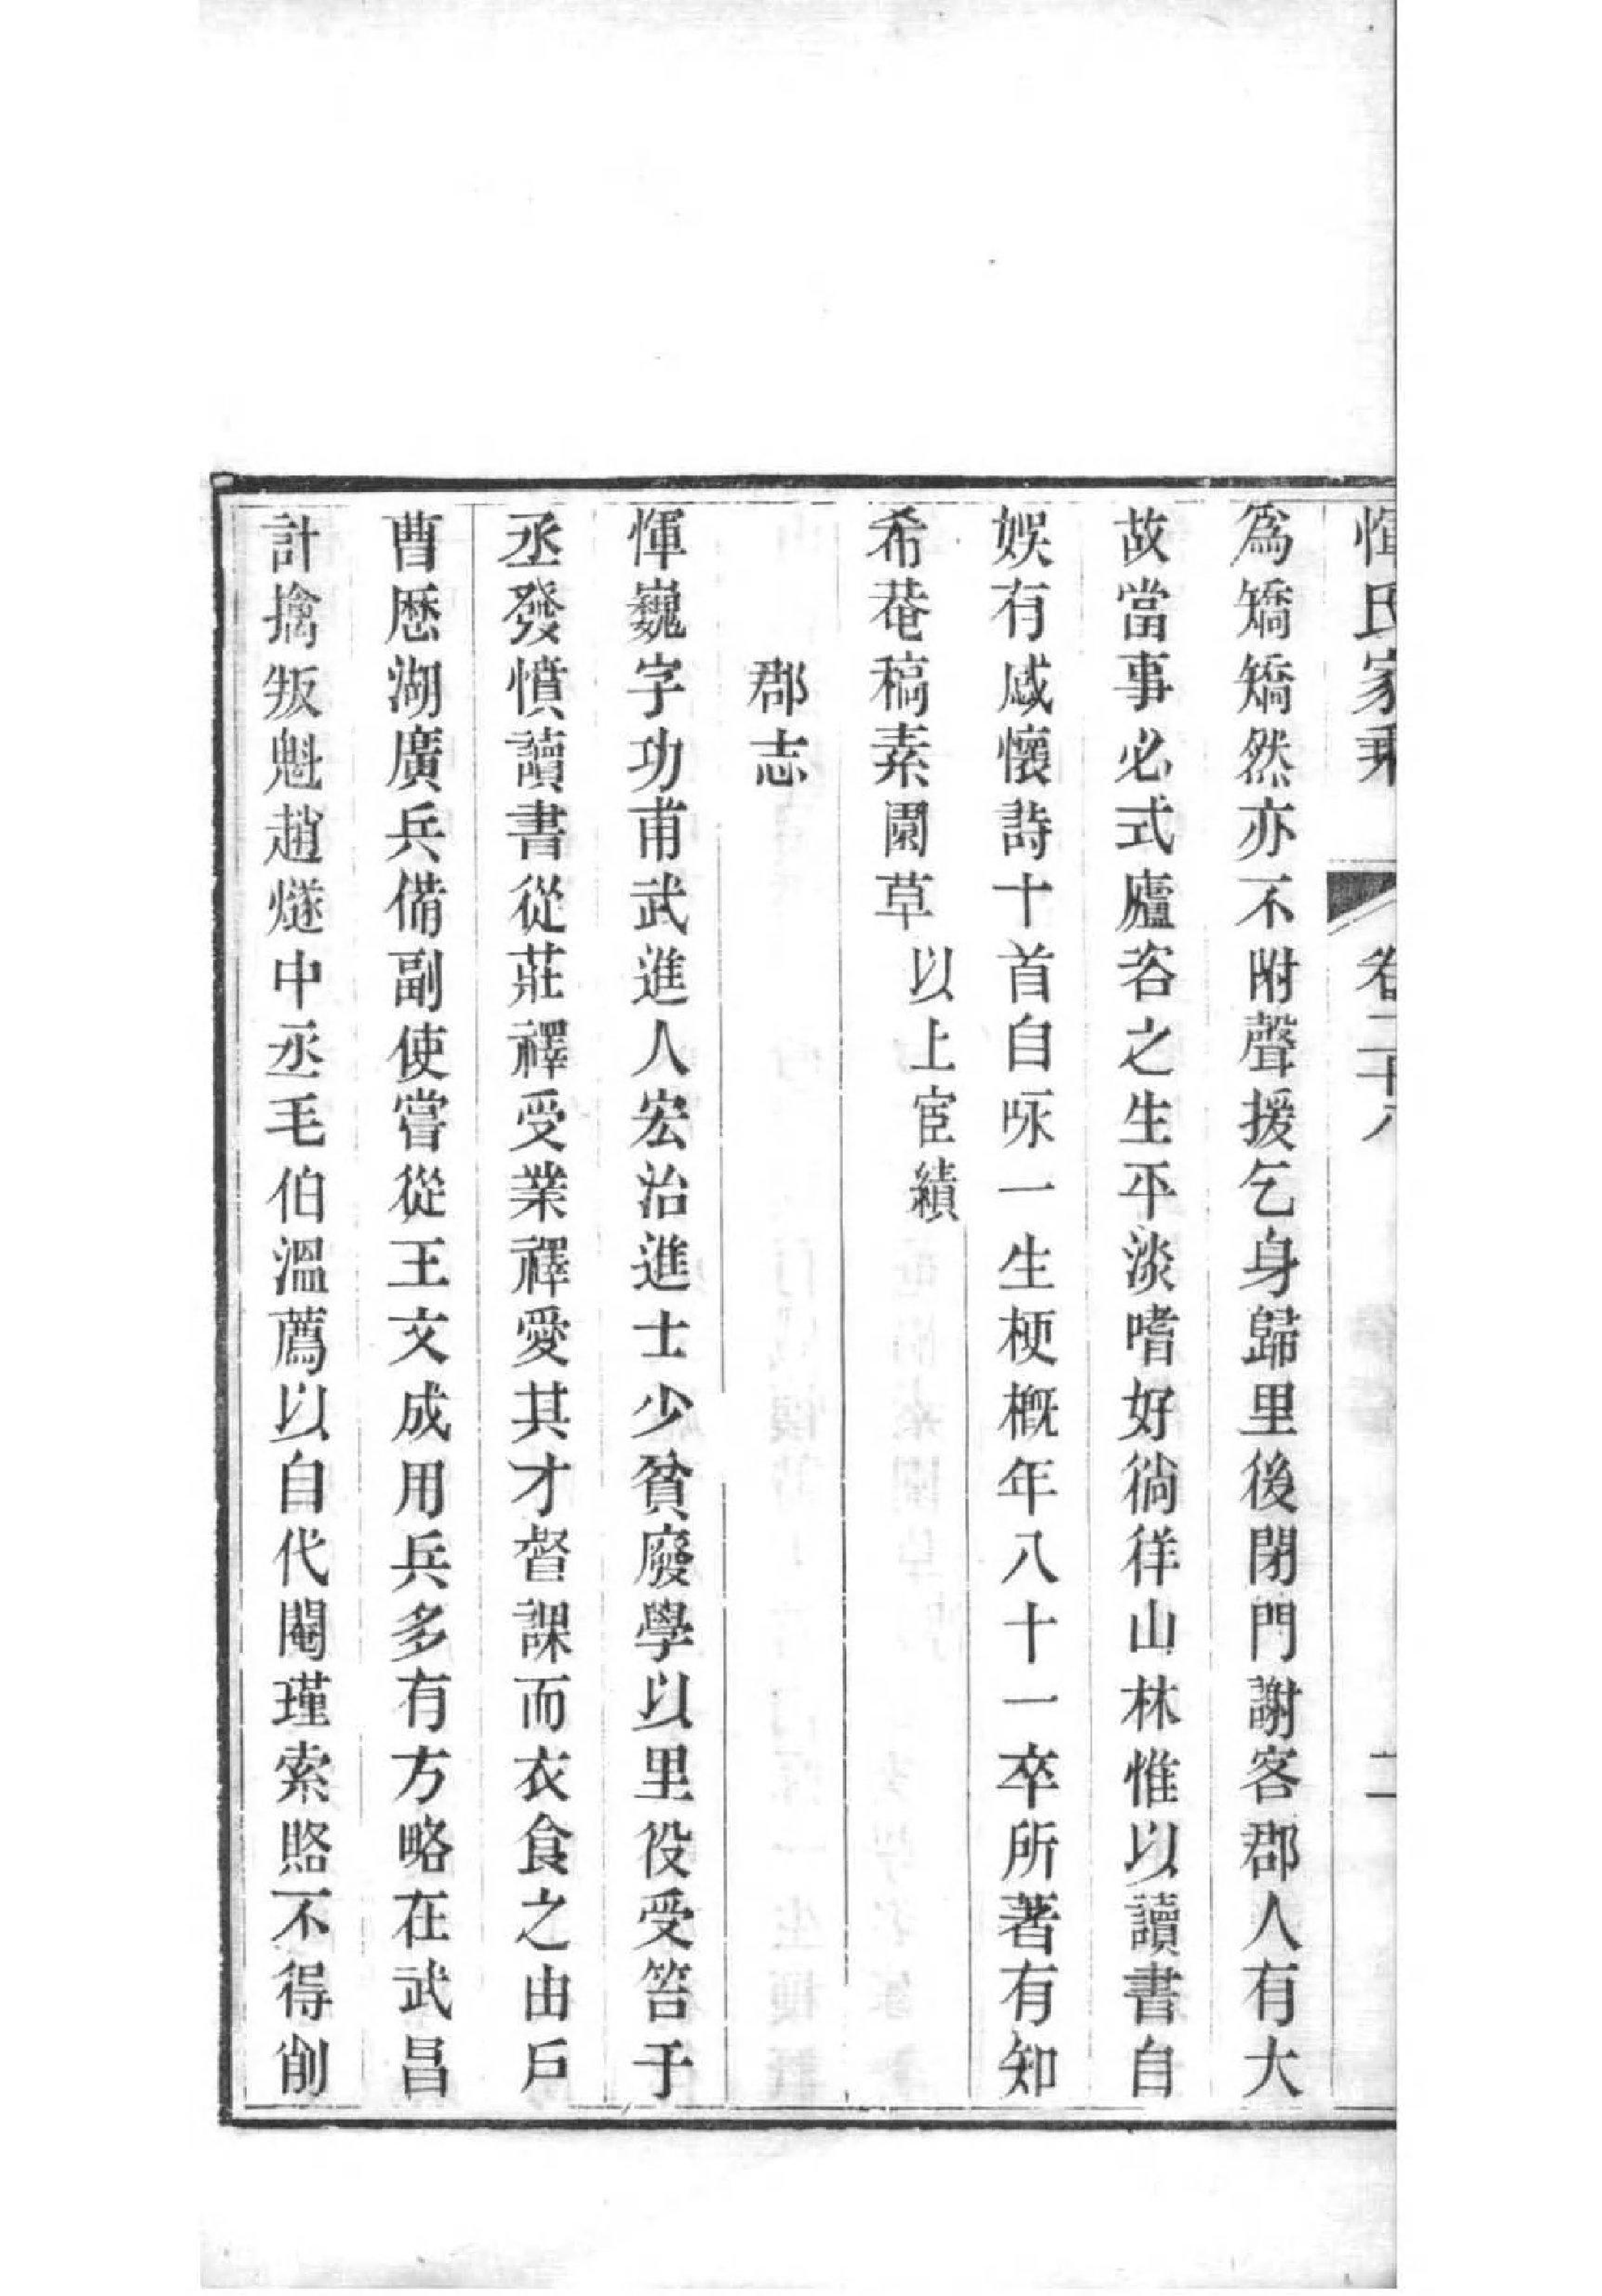 惲氏家乘　卷二十八　二
爲矯矯然亦不附聲援乞身歸里後閉門謝客郡人有大
故當事必式廬咨之生平淡嗜好徜徉山林惟以讀書自
娛有感懷詩十首自咏一生梗概年八十一卒所著有知
希菴稿素園草以上宦績
郡志
惲巍字功甫武進人宏治進士少貧廢學以里役受笞于
丞發憤讀書從莊襗受業襗愛其才督課而衣食之由戶
曹歷湖廣兵備副使嘗從王文成用兵多有方略在武昌
計擒叛魁趙燧中丞毛伯溫薦以自代閹瑾索賂不得削